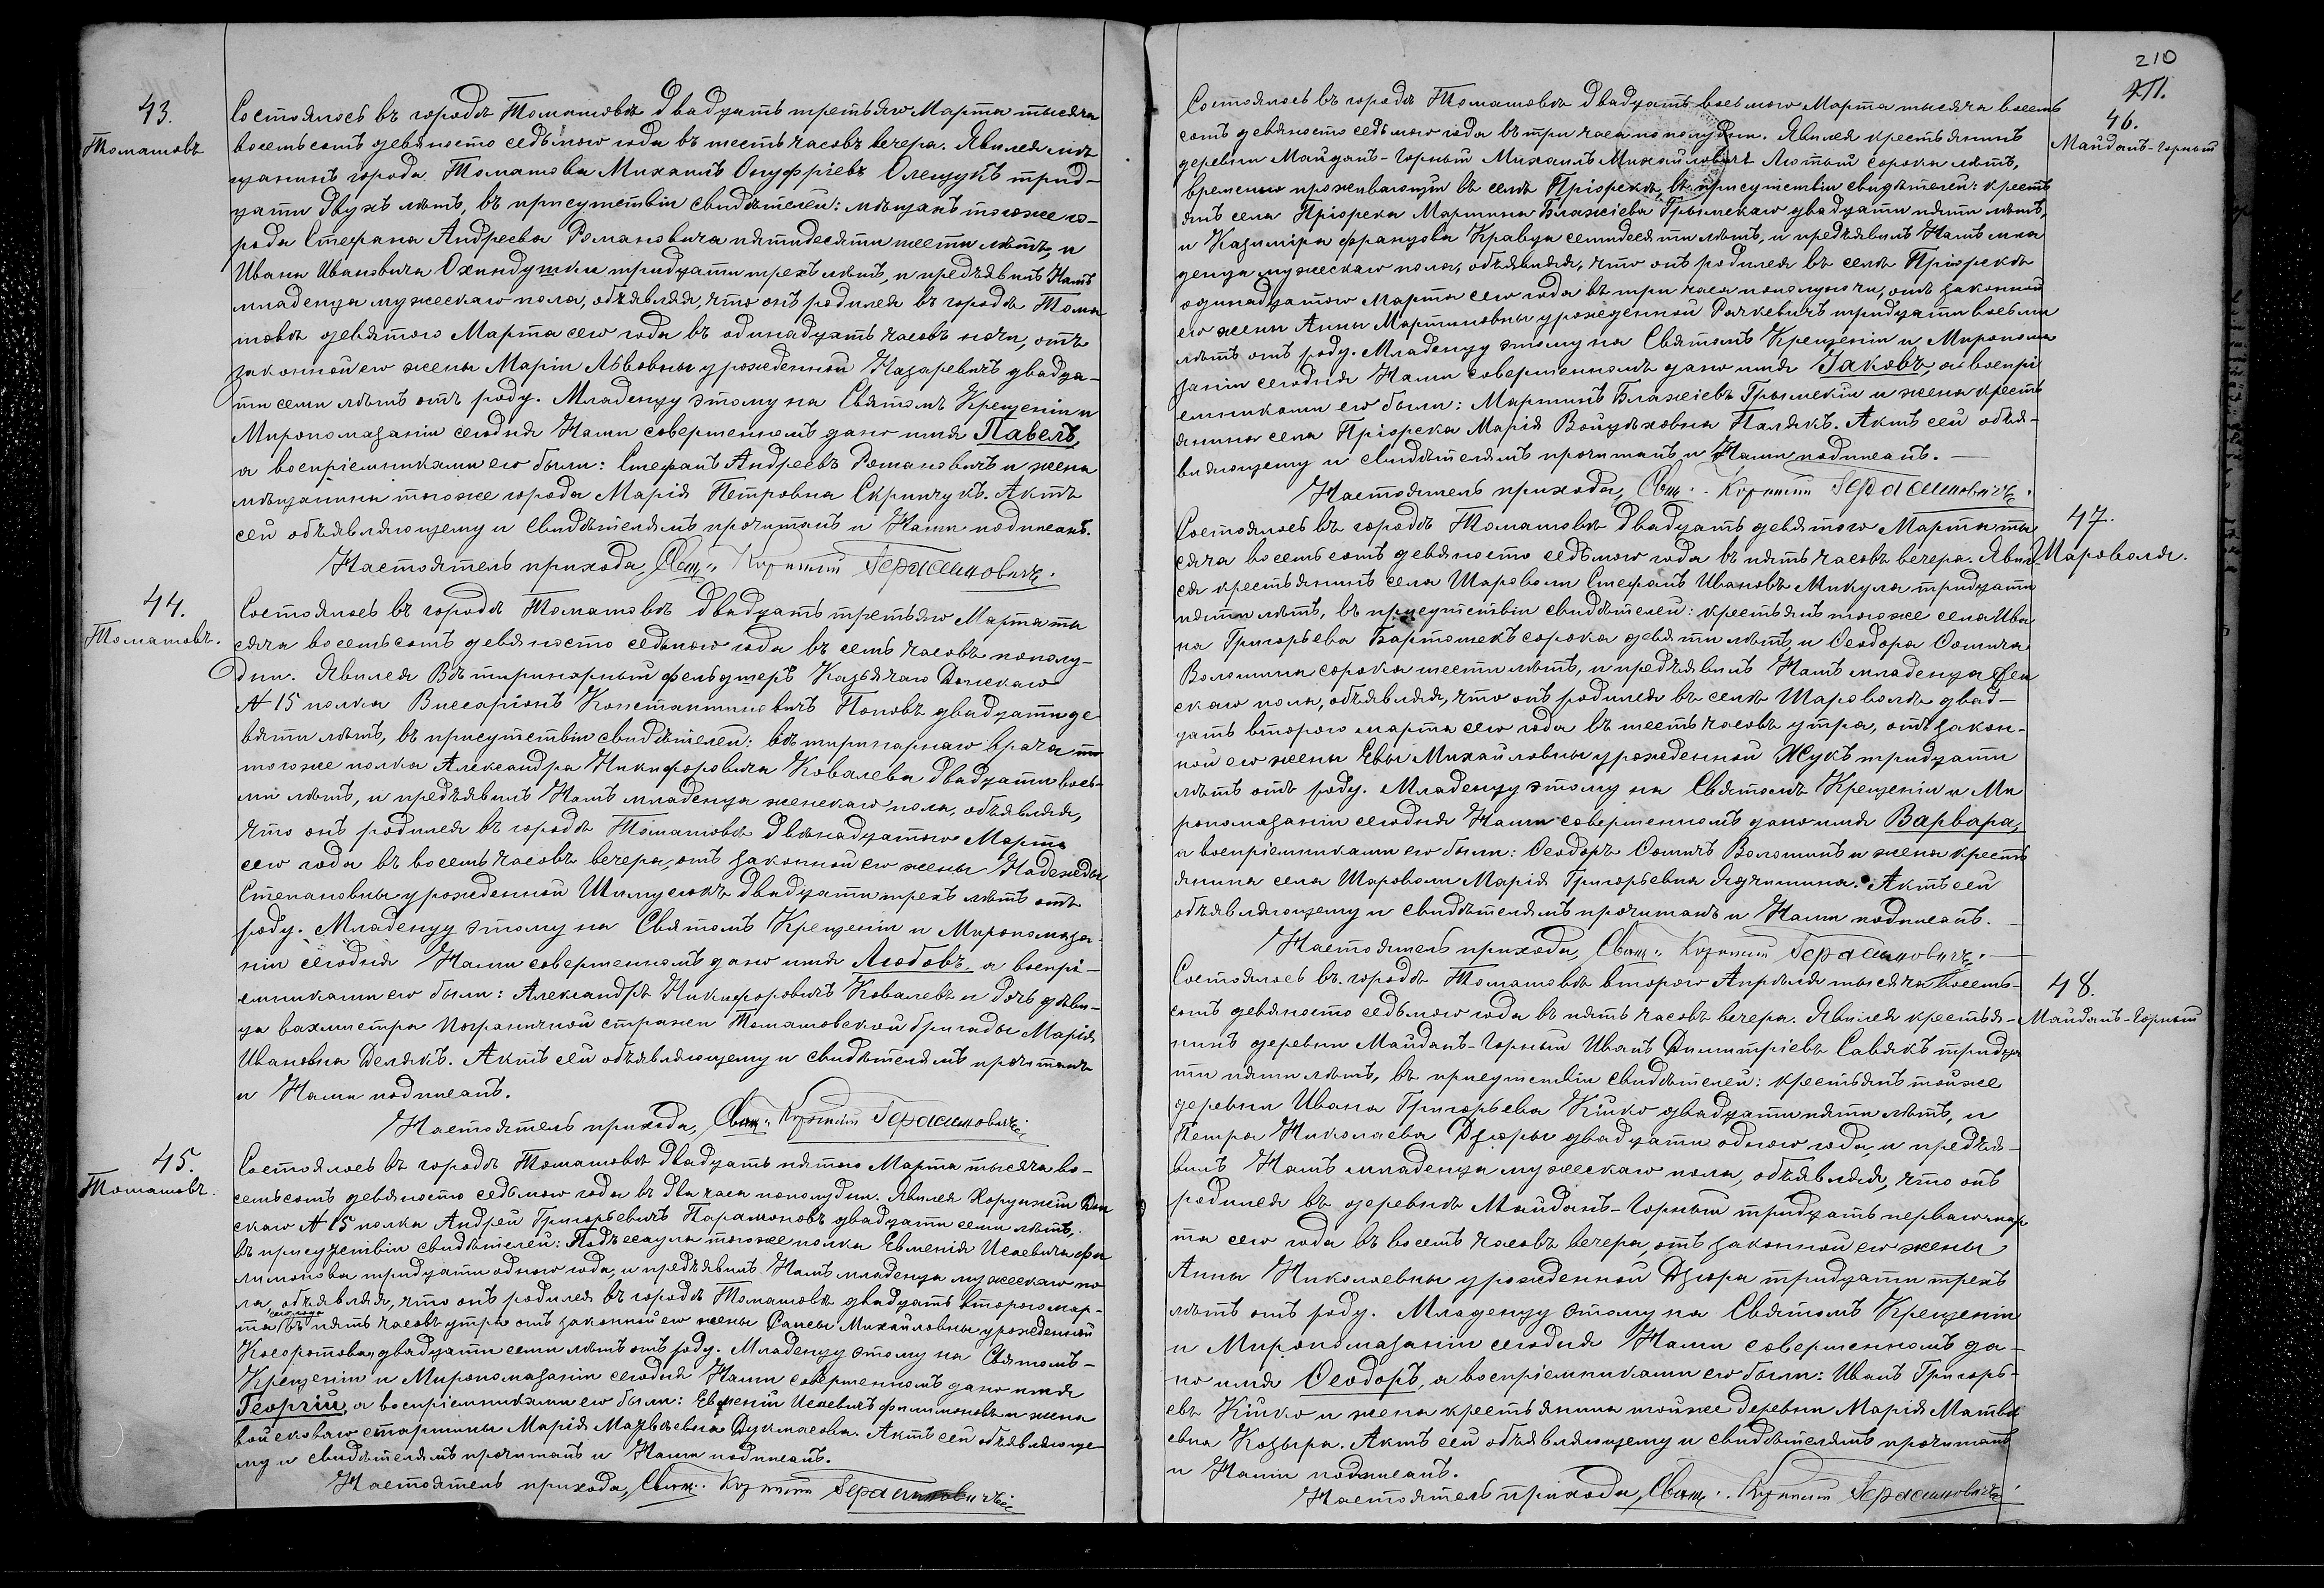 43.
Томашовъ
Состоялось въ городѣ Томашовѣ двадцать третьяго Марта тысяча
восемьсотъ девяносто седьмого года въ шесть часовъ вечера. Явился мѣ
щанинъ города Томашова Михаилъ Онуфріевъ Олещукъ трид-
цати двухъ лѣтъ, въ присутствіи свидѣтелей: мѣщанъ тогоже го-
рода Стефана Андреева Романовича пятидесяти шести лѣтъ, и
Ивана Ивановича тридцати трехъ лѣтъ, и предъявилъ Намъ
младенца мужескаго пола, объявляя, что онъ родился въ городѣ Тома
шовѣ девятого Марта сего года въ одинадцать часовъ ночи, отъ
законной его жены Маріи Львовны урожденной Назаревичъ двадца-
ти семи лѣтъ отъ роду. Младенцу этому на Святомъ Крещеніи и
Миропомазаніи сегодня Нами совершенномъ дано имя Павелъ,
а воспріемниками его были: Стефанъ Андреевъ Романовичъ и жена
мѣщанина тогоже города Марія Петровна Скрипчукъ. Актъ
сей объявляющему и свидѣтелямъ прочитанъ и Нами подписанъ.
Настоятель прихода, Свящ. Герасимовичъ.
44.
Томашовъ.
Состоялось въ городѣ Томашовѣ двадцать третьяго Марта ты
сяча восемьсотъ девяносто седьмого года въ семь часовъ пополу-
дни. Явился Ветиринарный фельдшеръ Казьячаго Донскаго
№ 15 полка Виссаріонъ Константиновичъ Поповъ двадцати де
вяти лѣтъ, въ присутствіи свидѣтелей: ветиринарнаго врача то
тогоже полка Александра Никифоровича Ковалева двадцати вось-
ми лѣтъ, и предъявилъ Намъ младенца женскаго пола, объявляя,
что онъ родился въ городѣ Томашовѣ двѣнадцатого Марта
сего года въ восемь часовъ вечера, отъ законной его жены Надежды
Степановны урожденной двадцати трехъ лѣтъ отъ
роду. Младенцу этому на Святомъ Крещеніи и Миропомаза-
ніи сегодня Нами совершенномъ дано имя Любовь, а воспрі-
емниками его были: Александръ Никифоровичъ Ковалевъ и дочь дѣви-
ца вахмистра пограничной стражи Томашовской бригады Марія
Ивановна Делякъ. Актъ сей объявляющему и свидѣтелямъ прочитанъ
и Нами подписанъ.
Настоятель прихода, Свящ. Герасимовичъ.
45.
Томашовъ.
Состоялось въ городѣ Томашовѣ двадцать пятого Марта тысяча во-
семьсотъ девяносто седьмого года въ два часа пополудни. Явился Хорунжій Дон
скаго № 15 полка Андрей Григорьевичъ Парамоновъ двадцати семи лѣтъ,
въ присутствіи свидѣтелей: Подъесаула тогоже полка Евменія Исаевича Фи
лимонова тридцати одного года, и предъявилъ Намъ младенца мужескаго по
ла, объявляя, что онъ родился въ городѣ Томашовѣ двадцать второго мар-
та сего года въ пять часовъ утра отъ законной его жены Раисы Михайловны урожденной
двадцати семи лѣтъ отъ роду. Младенцу этому на Святомъ-
Крещеніи и Миропомазаніи сегодня Нами совершенномъ дано имя
Георгій, а воспріемниками его были: Евменій Исаевичъ Филимоновъ и жена
войсковаго старшины Марія Матвѣевна Дукмасова. Актъ сей объявляюще-
му и свидѣтелямъ прочитанъ и Нами подписанъ.
Настоятель прихода, Свящ. Герасимовичъ.
210
46.
Майданъ-Горный
Состоялось въ городѣ Томашовѣ двадцать восьмого Марта тысяча восемь
сотъ девяносто седьмого года въ три часа пополудни. Явился крестьянинъ
деревни Майданъ-Горный Михаилъ Михайловичъ Лютый сорока лѣтъ,
временно проживающій въ селѣ Пріорскѣ, въ присутствіи свидѣтелей: кресть
янъ села Пріорска Мартина Блажіева Грымскаго двадцати пяти лѣтъ,
и Казиміра Францова Кравца семидесяти лѣтъ, и предъявилъ Намъ мла
денца мужескаго пола, объявляя, что онъ родился въ селѣ Пріорскѣ
одинадцатого Марта сего года въ три часа пополуночи, отъ законной
его жены Анны Мартиновны урожденной Рачкевичъ тридцати восьми
лѣтъ отъ роду. Младенцу этому на Святомъ Крещеніи и Миропома
заніи сегодня Нами совершенномъ дано имя Іаковъ, а воспрі
емниками его были: Мартинъ Блажіевъ Грымскій и жена кресть
янина села Пріорска Марія Войцѣховна Палякъ. Актъ сей объя-
вляющему и свидѣтелямъ прочитанъ и Нами подписанъ.
Настоятель прихода, Свящ. Герасимовичъ.
47.
Шароволя.
Состоялось въ городѣ Томашовѣ двадцать девятого Марта ты
сяча восемьсотъ девяносто седьмого года въ пять часовъ вечера. Явил
ся крестьянинъ села Шароволи Стефанъ Ивановъ Микула тридцати
пяти лѣтъ, въ присутствіи свидѣтелей: крестьянъ тогоже села Ива
на Григорьева Бартошекъ сорока девяти лѣтъ, и Ѳеодора Ѳомича
Волошина сорока шести лѣтъ, и предъявилъ Намъ младенца жен
скаго пола, объявляя, что онъ родился въ селѣ Шароволѣ двад-
цать второго марта сего года въ шесть часовъ утра, отъ закон-
ной его жены Евы Михайловны урожденной Жукъ тридцати
лѣтъ отъ роду. Младенцу этому на Святомъ Крещеніи и Ми
ропомазаніи сегодня Нами совершенномъ дано имя Варвара,
а воспріемниками его были: Ѳеодоръ Ѳомичъ Волошинъ и жена кресть
янина села Шароволи Марія Григорьевна Ядчишина. Актъ сей
объявляющему и свидѣтелямъ прочитанъ и Нами подписанъ.
Настоятель прихода, Свящ. Герасимовичъ.
48.
Майданъ-Горный
Состоялось въ городѣ Томашовѣ второго Апрѣля тысяча восемь-
сотъ девяносто седьмого года въ пять часовъ вечера. Явился крестья-
нинъ деревни Майданъ-Горный Иванъ Димитріевъ Савякъ тридца
ти пяти лѣтъ, въ присутствіи свидѣтелей: крестьянъ тойже
деревни Ивана Григорьева Кійко двадцати пяти лѣтъ, и
Петра Николаева Дзюры двадцати одного года, и предъя-
вилъ Намъ младенца мужескаго пола, объявляя, что онъ
родился въ деревнѣ Майданъ-Горный тридцать перваго мар
та сего года въ восемь часовъ вечера, отъ законной его жены
Анны Николаевны урожденной Дзюра тридцати трехъ
лѣтъ отъ роду. Младенцу этому на Святомъ Крещеніи
и Миропомазаніи сегодня Нами совершенномъ да-
но имя Ѳеодоръ, а воспріемниками его были: Иванъ Григорь-
евъ Кійко и жена крестьянина тойже деревни Марія Матвѣ
евна Козыра. Актъ сей объявляющему и свидѣтелямъ прочитанъ
и Нами подписанъ.
Настоятель прихода, Свящ. Герасимовичъ.